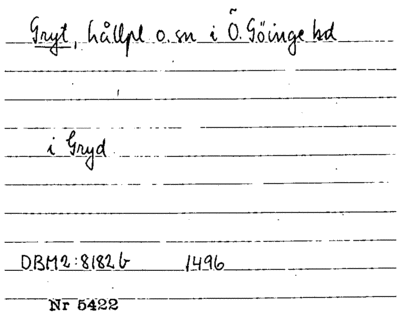 Gryt, hållpl o. sn i Ö. Göinge hd
i Gryd
DBM2:8182b 1496
Nr 5422